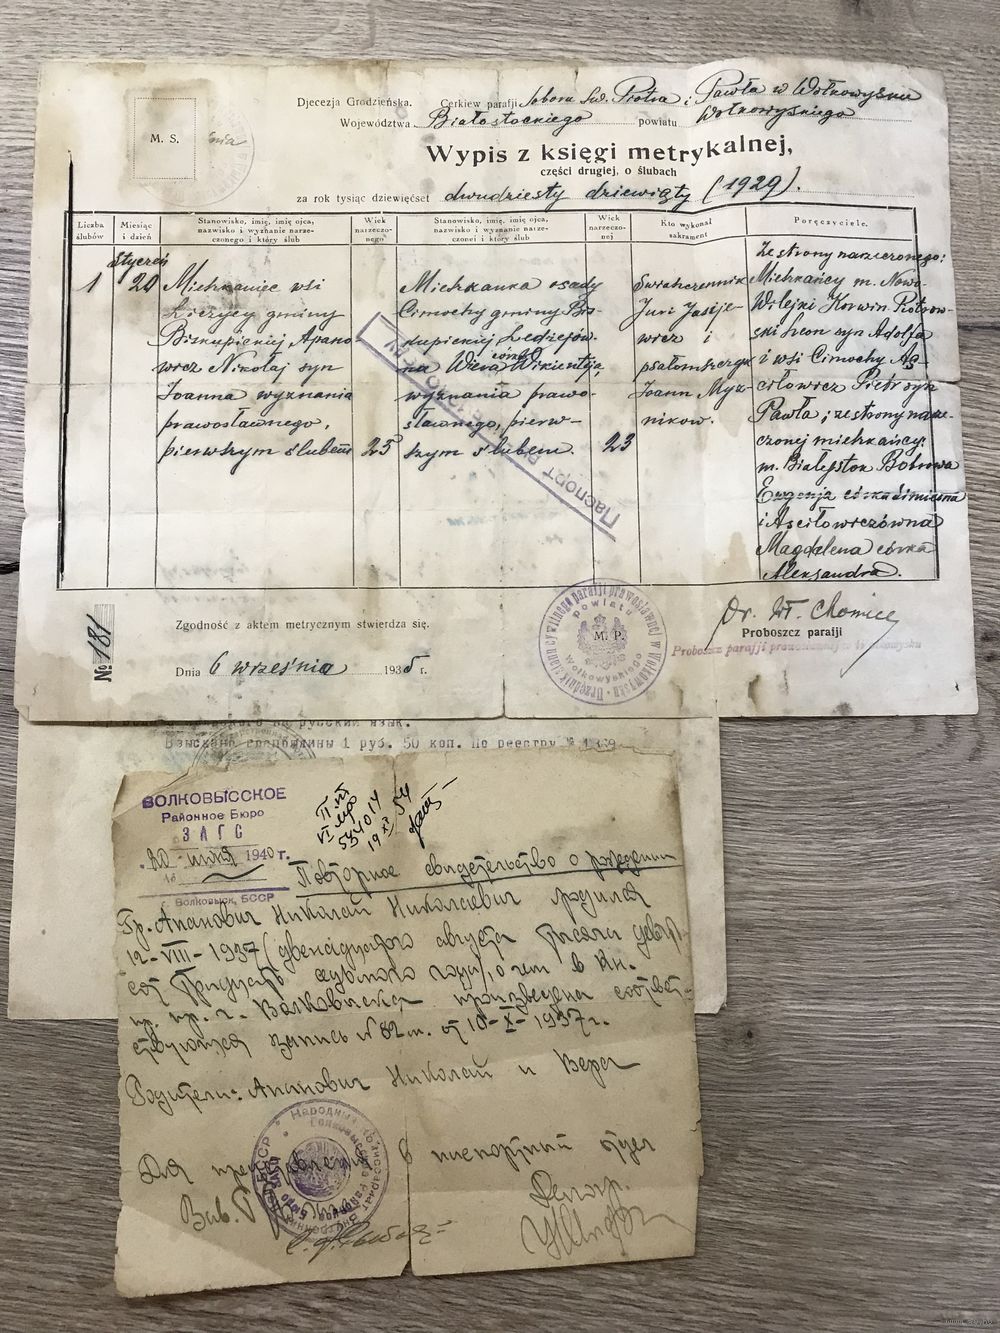 M. S.
Djecezja Grodzieńska. Cerkiew parafji Sobora Św. Piotra i Pawła w Wołkowysku
Województwa Białostockiego powiatu Wołkowyskiego
Wypis z księgi metrykalnej,
części drugiej, o ślubach
za rok tysiąc dziewięćset dwudziesty dziewiąty (1929).
Liczba ślubów
Miesiąc i dzień
Stanowisko, imię, imię ojca,
nazwisko i wyznanie narze-
czonego i który ślub
Wiek
narzeczo-
nego
Stanowisko, imię, imię ojca,
nazwisko i wyznanie narze-
czonej i który ślub
Wiek
narzeczo-
nej
Kto wykonał
sakrament
Poręczyciele.
1
Styczeń
20
Mieszkaniec wsi
gminy
Biskupickiej Apano
wicz Nikołaj syn
Joanna wyznania
prawosławnego,
pierwszym ślubem
25
Mieszkanka osady
Cimochy gminy Bis-
kupickiej
na Wiera córka Wikientja,
wyznania prawo-
sławnego, pierw-
szym ślubem.
23
Swiaszczennik
Juri
wicz i
psałomszczyk
Joann Myz-
nikow.
Ze strony narzeczonego:
Mieszkańcy m. Nowo-
Wilejki Korwin Piotrow-
ski Leon syn Adolfa
i wsi Cimochy As-
ciłowicz Piotr syn
Pawła; ze strony narze-
czonej mieszkańcy:
m. Białystok Bobrowa
Eugenja córka
i Asciłowiczówna
Magdalena córka
Aleksandra.
Паспорт
№ 181
Zgodność z aktem metrycznym stwierdza się.
Dnia 6 września 1935 r.
M. P.
Urzędnik stanu cywilnego parafji prawosławnej w Wołkowysku
powiatu
Wołkowyskiego
Proboszcz parafji
Proboszcz parafji prawosławnej w Wołkowysku
на русский язык.
Взыскано госпошлины 1 руб. 50 коп. По реестру № 1369
ВОЛКОВЫССКОЕ
Районное Бюро
ЗАГС
20 июня 1940 г.
г. Волковыск, БССР
534014
19 XI 54
Повторное свидетельство о рождении
Гр. Апанович Николай Николаевич родился
12-VIII-1937 (двенадцатого августа тысяча девят-
сот тридцать седьмого года), о чем в кн.
г. Волковыска произведена соответ-
ствующая запись № 82 от 10-X-1937 г.
Родители: Апанович Николай и Вера
Для представления в паспортный отдел
Зав.
Делопр.